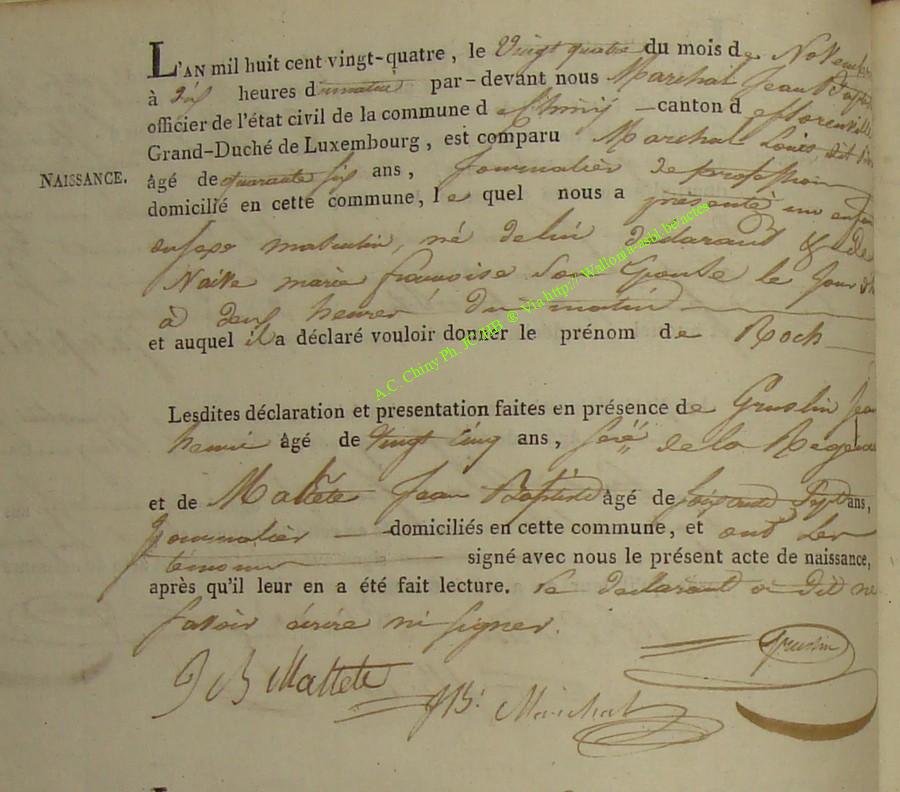 L'AN mil huit cent vingt-quatre, le Vingt quatre du mois de Novembre
à dix heures du matin par-devant nous Marchal Jean Baptiste
officier de l'état civil de la commune de Chiny canton de florenville
Grand-Duché de Luxembourg, est comparu Marchal Louis, dit
NAISSANCE.
âgé de quarante six ans, Journalier de profession
domicilié en cette commune, le quel nous a présenté un enfant
du sexe masculin, né de lui déclarant & de
marie françoise Son Epouse le Jour
à deux heures du matin
et auquel il a déclaré vouloir donner le prénom de Roch
A.C. Chiny Ph. JC MB ® Via http://Wallonia-asbl.be/actes
Lesdites déclaration et presentation faites en présence de Gruslin Jean
henri âgé de vingt cinq ans, de la Regence
et de Maltete Jean Baptiste âgé de Soixante Sept ans,
Journalier domiciliés en cette commune, et ont les
temoins signé avec nous le présent acte de naissance,
après qu'il leur en a été fait lecture. le declarant a dit ne
savoir écrire ni signer.
Gruslin
J B Maltete
JB: Marchal